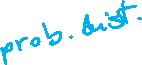 prob. dist.